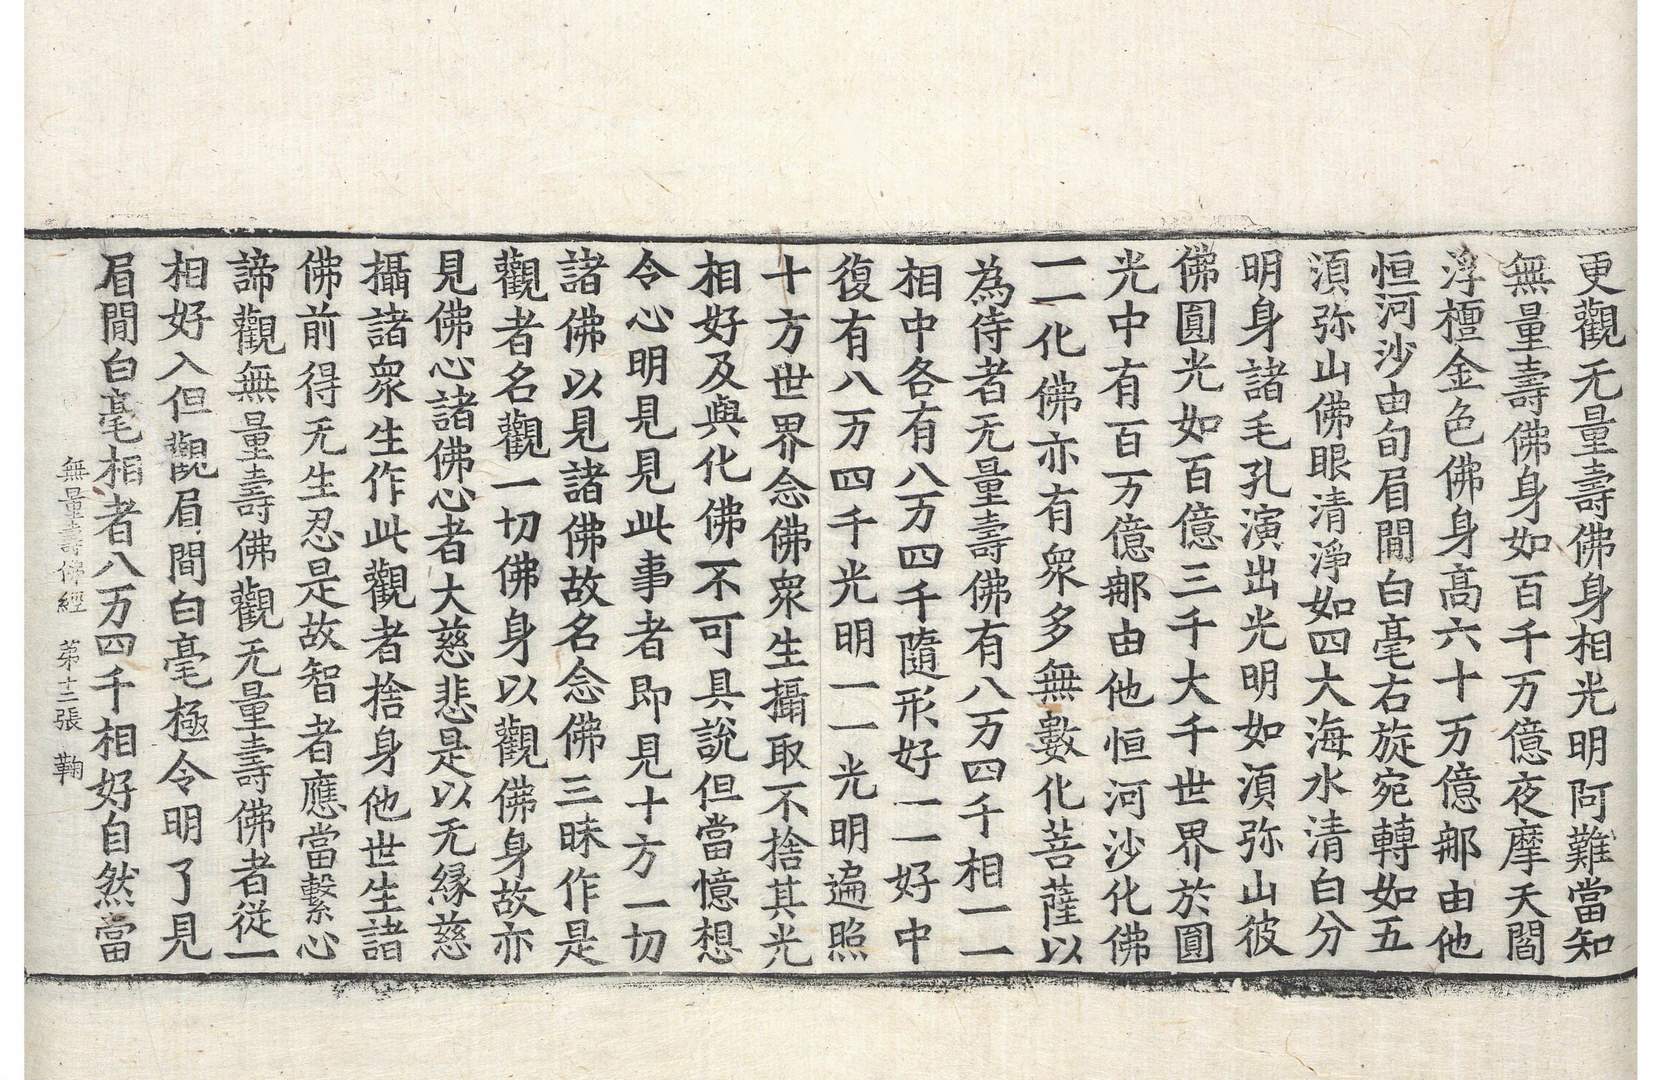 更觀无量壽佛身相光明阿難當知
無量壽佛身如百千万億夜摩天閻
浮檀金色佛身高六十万億那由他
恒河沙由旬眉間白毫右旋宛轉如五
湏弥山佛眼清淨如四大海水清白分
明身諸毛孔演出光明如湏弥山彼
佛圓光如百億三千大千世界於圓
光中有百万億那由他恒河沙化佛
一一化佛亦有衆多無數化菩薩以
為侍者无量壽佛有八万四千相一一
相中各有八万四千隨形好一一好中
復有八万四千光明一一光明遍照
十方世界念佛衆生攝取不捨其光
相好及與化佛不可具說但當憶想
令心明見見此事者即見十方一切
諸佛以見諸佛故名念佛三昧作是
觀者名觀一切佛身以觀佛身故亦
見佛心諸佛心者大慈悲是以无緣慈
攝諸衆生作此觀者捨身他世生諸
佛前得无生忍是故智者應當繫心
諦觀無量壽佛觀无量壽佛者從一
相好入但觀眉間白毫極令明了見
眉間白毫相者八万四千相好自然當
無量壽佛經 第十二張 鞠